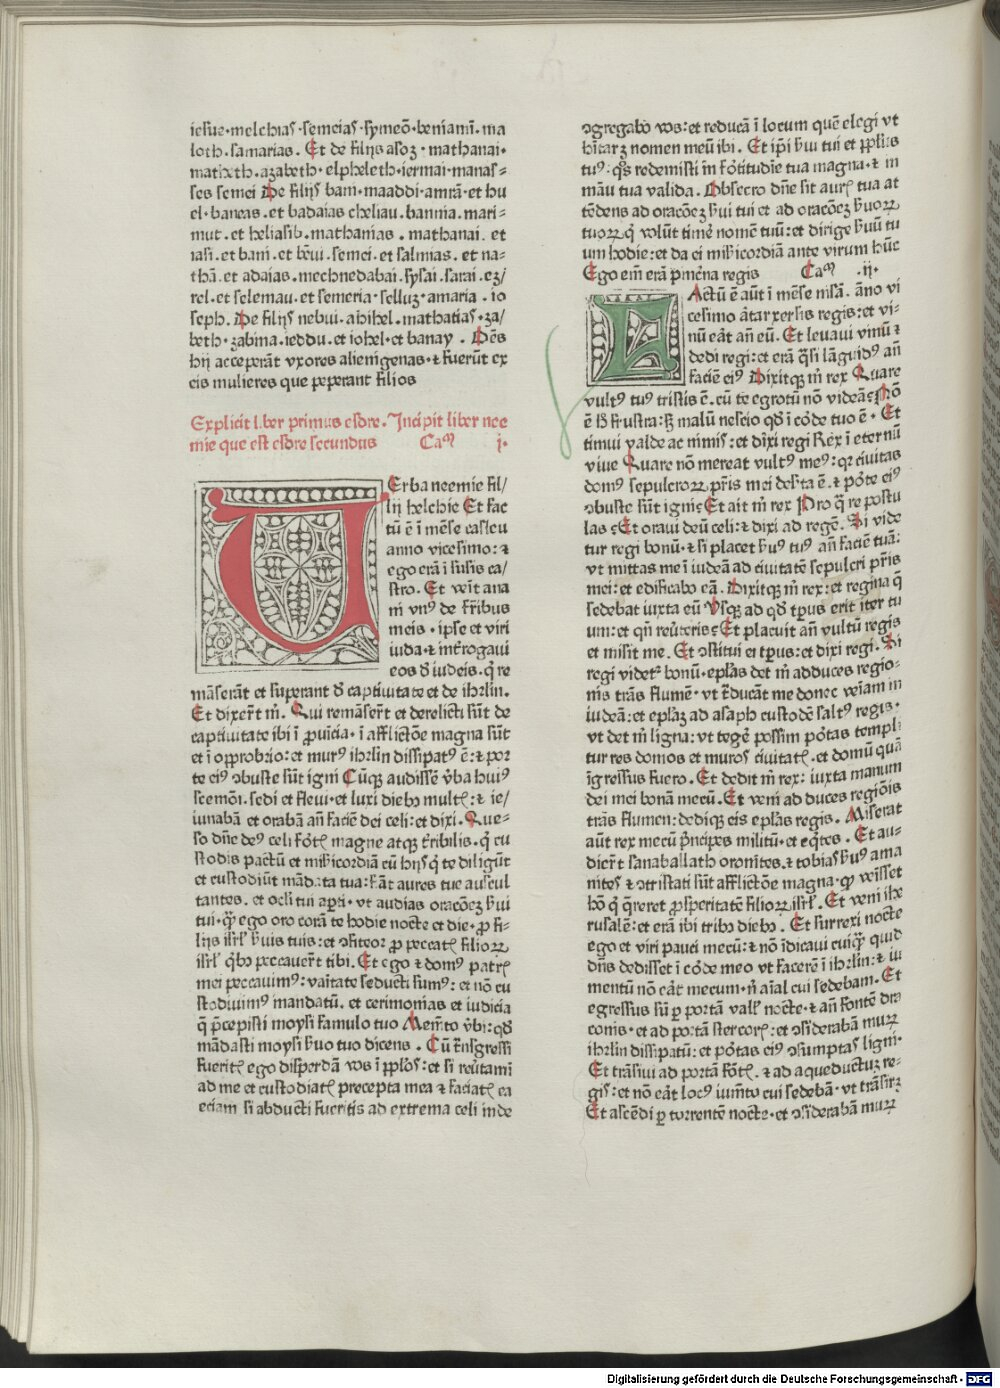 iesue·melchias·semeias·symeō·beniamī.ma
loth.samarias. Et de filijs asoʒ·mathanai·
mathath·aʒabeth·elpheleth·iermai·manas⸗
ses semei De filijs bani·maaddi·amrā·et hu
el·baneas.et badaias cheliau.bannia.mari⸗
mut.et heliasib.mathanias.mathanai. et
iasi.et bani.et bēui.semei.et salmias. et na⸗
thā.et adaias.mechnedabai·sysai.sarai.eʒ/
rel.et selemau.et semeria·selluʒ·amaria.io
seph. De filijs nebui.ahihel.mathatias.ʒa/
beth·ʒabina.ieddu.et iohel·et banay. Oēs
hij acceperāt vxores alienīgenas·⁊ fuerūt ex
eis mulieres que pepererant filios
Explicit liber primus esdre. Incipit liber nee
mie que est esdre secundus Caᵐ i.
Erba neemie fil/
lij helchie Et fac
tū ē ī mēse casleu
anno vicesimo:⁊
ego erā ī susis ca/
stro. Et venīt ana
nī vnꝰ de fr̄ibus
meis.ipse et viri
iuda·⁊ int̄rogaui
eos d̄ iudeis.q̄ re
māserāt et suꝑant d̄ captiuitate et de ihrlm̄.
Et dixer̄t m̄. Qui remāser̄t et derelicti sūt de
captiuitate ibi ī ꝓuīcia.ī afflictōe magna sūt
et ī opprobrio:et murꝰ ihrlm̄ dissipatꝰ ē:⁊ por
te eiꝰ ɔbuste sūt igni Cūqʒ audissē v̄ba huiꝰ
scemōi.sedi et fleui·et luxi diebꝫ mult̄:⁊ ie/
iunabā et orabā an̄ faciē dei celi:et dixi. Que⸗
so dn̄e deꝰ celi fort̄ magne atqʒ t̄ribilis.q̄ cu
stodis pactū et mīsericordiā cū hijs q̄ te diligūt
et custodiūt mādata tua:fiāt aures tue auscul
tantes.et ocli tui aꝑti.vt audias oracōeʒ s̄ui
tui.q̄ ego oro corā te hodie nocte et die.ꝓ fi⸗
lijs isrl̄ s̄uis tuis:et ɔfiteor ꝓ peccat̄ filioꝝ
isrl̄ q̄bꝫ peccauer̄t tibi. Et ego ⁊ domꝰ patr̄
mei peccauimꝰ:vāitate seducti sumꝰ:et nō cu
stodiuimꝰ mandatū.et cerimonias et iudicia
q̄ p̄cepisti moysi famulo tuo Mem̄to v̄bi:qd̄
mādasti moysi s̄uo tuo dicens. Cū t̄nsgressi
fuerit̄ ego disperdā vos ī pplōs:et si reūtami
ad me et custodiat̄ precepta mea ⁊ faciat̄ ea
eciam si abducti fueritis ad extrema celi inde
ɔgregabo vos:et reducā ī locum quē elegi vt
hītarʒ nomen meū ibi. Et ip̄i s̄ui tui et pplūs
tuꝰ:q̄s redemisti in fōtitudīe tua magna·⁊ in
māu tua valida. Obsecro dn̄e sit aurꝭ tua at
tēdens ad oracōeʒ s̄ui tui et ad oracōeʒ s̄uoꝝ
tuoꝝ q̄ volūt timē nomē tuū:et dirige s̄uū tu
um hodie:et da ei mīsericordiā ante virum hūc
Ego eīm erā pīncēna regis Caᵐ .ij.
Actū ē aūt ī mēse nīsā. āno vi
cesimo ātarxersis regis:et vi⸗
nū eāt an̄ eū. Et leuaui vinū ⁊
dedi regi:et erā q̄si lāguidꝰ an̄
faciē eiꝰ Dixitqʒ m̄ rex Quare
vultꝰ tuꝰ tristis ē.cū te egrotū nō videā? Nō
ē h̄ frustra:sʒ malū nescio qd̄ ī corde tuo ē. Et
timui valde ac nimis:et dixi regi Rex ī eternū
viue Quare nō mereat vultꝰ meꝰ:qꝛ ciuitas
domꝰ sepulcroꝝ pr̄is mei des̄ta ē.⁊ porte eiꝰ
ɔbuste sūt igni? Et ait m̄ rex Pro q̄ re postu
las? Et oraui deū celi:⁊ dixi ad regē. Si vide
tur regi bonū.⁊ si placet s̄uꝰ tuꝰ an̄ faciē tuā:
vt mittas me ī iudeā ad ciuitatē sepulcri pr̄is
mei:et edificabo eā. Dixitqʒ m̄ rex:et regina q̄
sedebat iuxta eū Vsqʒ ad qd̄ tp̄us erit iter tu
um:et qn̄ reūteris? Et placuit an̄ vultū regis
et misit me. Et ɔstitui ei tp̄us:et dixi regi. Si
regi videt̄ bonū.eplās det m̄ ad duces regio⸗
nis trās flumē.vt t̄ducāt me donec veīam in
iudeā:et eplāʒ ad asaph custodē saltꝰ regis.
vt det m̄ ligna:vt tegē possim portas templi
tur res domos et muros ciuitat̄.et domū quā
īgressus fuero. Et dedit m̄ rex:iuxta manum
dei mei bonā mecū. Et veni ad duces regiōis
trās flumen:dediqʒ eis eplās regis. Miserat
aūt rex mecū p̄ncipes militū.et eq̄tes. Et au⸗
dier̄t sanaballath oronites.⁊ tobias s̄uꝰ ama
nites ⁊ ɔtristati sūt afflictōe magna.qꝙ veisset
hō q̄ q̄reret ꝓsperitatē filioꝝ isrl̄. Et veni ihe
rusalē:et erā ibi tribꝫ diebꝫ. Et surrexi nocte
ego et viri pauci mecū:⁊ nō īdicaui cuiqʒ quid
dn̄s dedisset ī corde meo vt facerē ī ihrlm̄:⁊ iu
mentū nō eāt mecum.n̄ aīal cui sedebam. Et
egressus sū ꝑ portā vall̄ nocte.⁊ an̄ fontē dra
conis.et ad portā stercorꝭ:et ɔsiderabā muꝝ
ihrlm̄ dissipatū:et portas eiꝰ ɔsumptas igni.
Et trāsiui ad portā fōt̄.⁊ ad aqueductuʒ re⸗
gis:et nō eāt locꝰ iumēto cui sedebā.vt trāsirʒ
Et ascēdi ꝑ torrentē nocte.et ɔsiderabā muꝝ
Digitalisierung gefördert durch die Deutsche Forschungsgemeinschaft - DFG